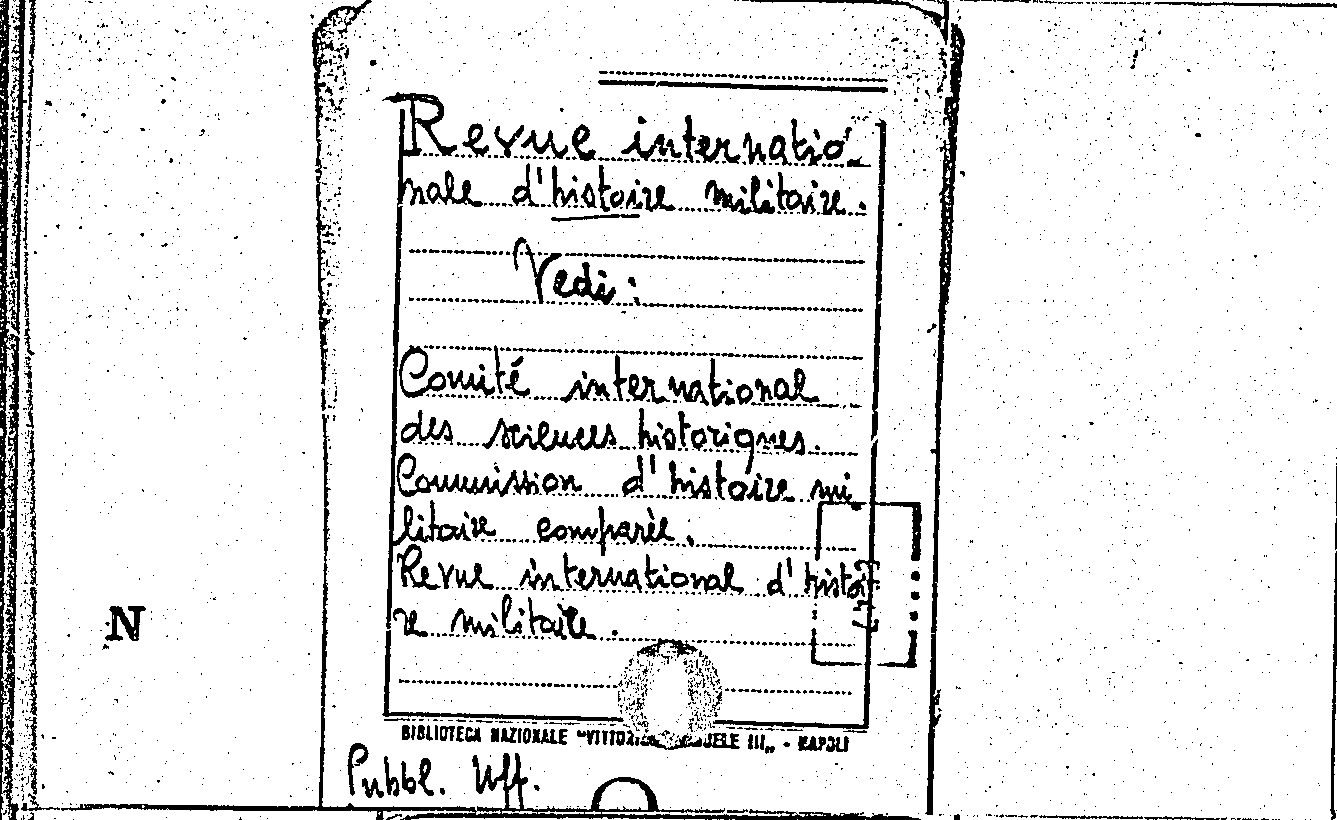 Revue internatio-
nale d'histoire militaire.
Vedi:
Comité international
des sciences historiques.
Commission d'histoire mi-
litaire comparèe.
Revue international d'histoi
re militaire.
N
BIBLIOTECA NAZIONALE "VITTORIO EMANUELE III„ - NAPOLI
Pubbl. Uff.